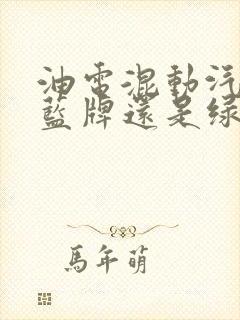 油電混動汽
藍牌還是綠
馬年萌